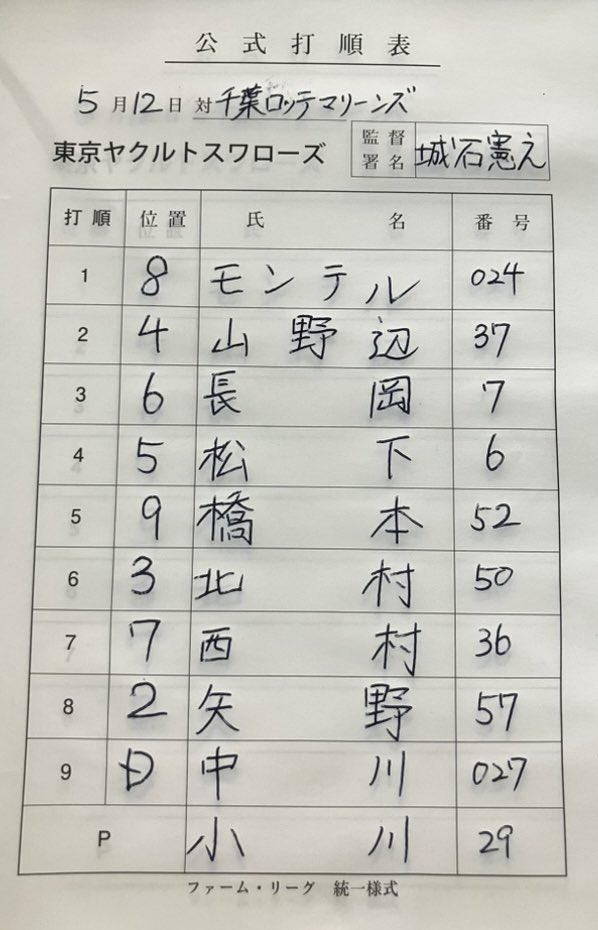 公式打順表
5月12日 対 千葉ロッテマリーンズ
東京ヤクルトスワローズ 監督署名 城石憲之
打順 位置 氏名 番号
1 8 モンテル 024
2 4 山野辺 37
3 6 長岡 7
4 5 松下 6
5 9 橋本 52
6 3 北村 50
7 7 西村 36
8 2 矢野 57
9 D 中川 027
P 小川 29
ファーム・リーグ 統一様式